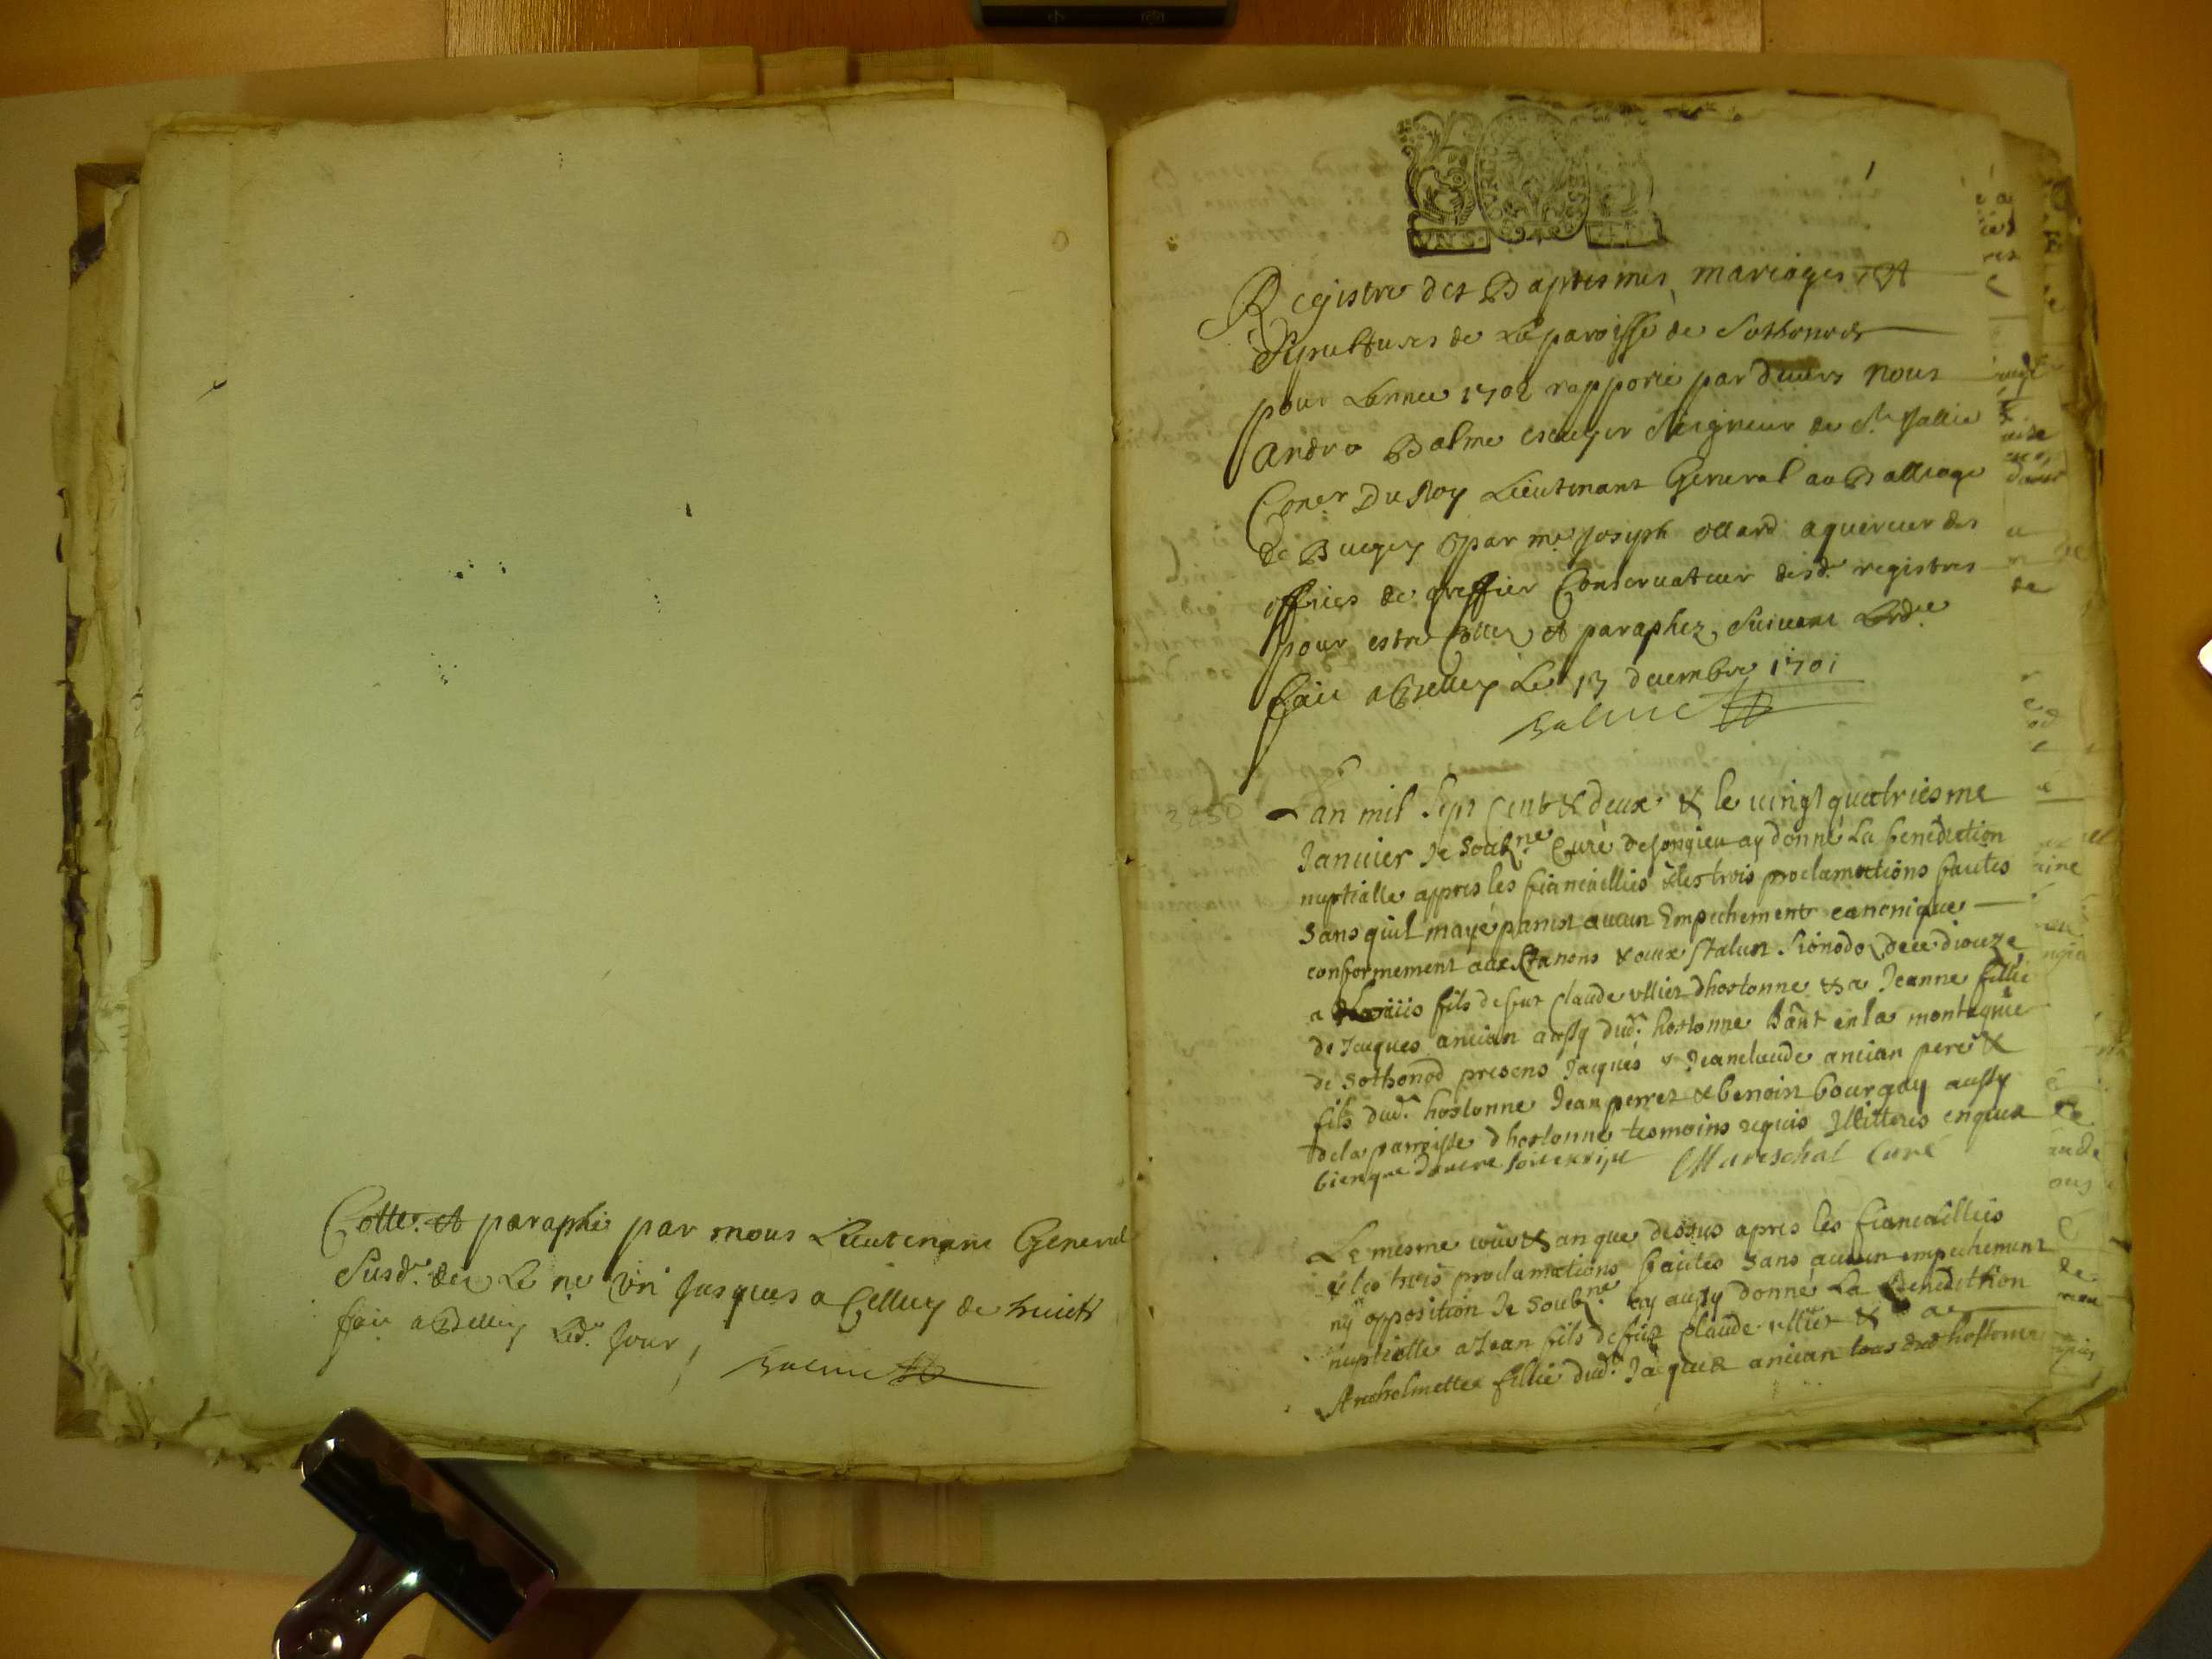 Cotté et paraphé par nous Lieutenant General
Susd. des Le ne Un Jusques a Celluy de huict
fait a Belley Led. Jour
Balme
1
VN S.
Registre des Baptesmes, mariages et
Sepultures de La paroisse de Sothonod
pour Lannee 1702 rapporté par deuers nous
Andre Balme escuyer Seigneur de St Vallie
Coner Du Roy Lieutenant General au Balliage
de Bugey par me Joseph ollard aquereur des
offices de greffier Conseruateur desd. registres
pour estre Cottez et paraphez, Suiuant Lord.e
fait a Belley Le 13 decembre 1701
Balme
3850
Lan mil Sept Cent & deux & le uingt quatriesme
Januier Je Soub.ne Curé de Songieu ay donné La benediction
nuptialle appres les fiancaillies & les trois proclamations faites
Sans quil maye parust aucun Empechement canonique
conformement aux Canons & aux Statust Sinodo de ce dioceze
a fils de feut Claude ulliet dhostonne & a Jeanne fillie
de Jacques ancian aussy dud. hostonne hant en la montagnie
de Sothonod presens Jacques & Jeanclaude ancian pere &
fils dud. hostonne Jean perret & benoist bourgay aussy
de la parroisse dhostonne tesmoins requis Illitteres enquis
bien que dautre soit escript Mareschal Curé
Le mesme iour & an que dessus apres les fiancaillies
& les trois proclamations faites Sans aucun empechement
ny opposition Je Soub.ne ay aussy donné La Benediction
nuptialle a Jean fils de feut Claude ulliet & a
Antholmette fillie dud. Jacques ancian hostonne